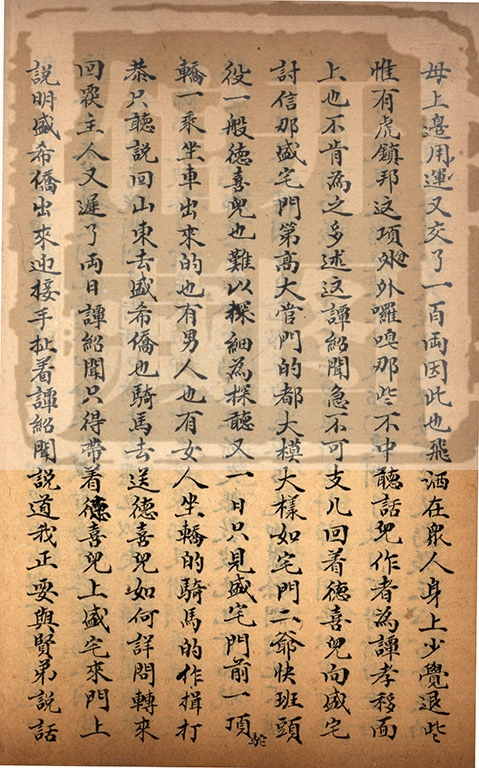 母上邉用運又交了一百両因此也飛洒在衆人身上少覺退些
惟有虎鎮邦这項外外囉嗅那些不中聽話兒作者為譚孝移面
上也不肯為之多述这譚紹聞急不可支几回着德喜兒向盛宅
討信那盛宅門第高大管門的都大模大樣如宅門二爺快班頭
役一般德喜兒也難以探細為探聽又一日只見盛宅門前一頂駝
轎一乘坐車出來的也有男人也有女人坐轎的騎馬的作揖打
恭只聽説回山東去盛希僑也騎馬去送德喜兒如何詳問轉來
回宲主人又遲了両日譚紹聞只得帶着德喜兒上盛宅來門上
説明盛希僑出來迎接手扯着譚紹聞説道我正要與賢弟説話